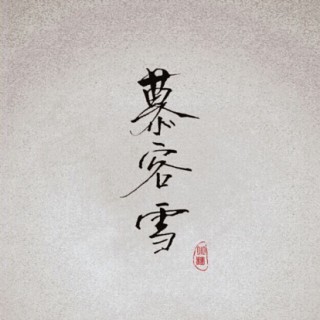 慕容雪